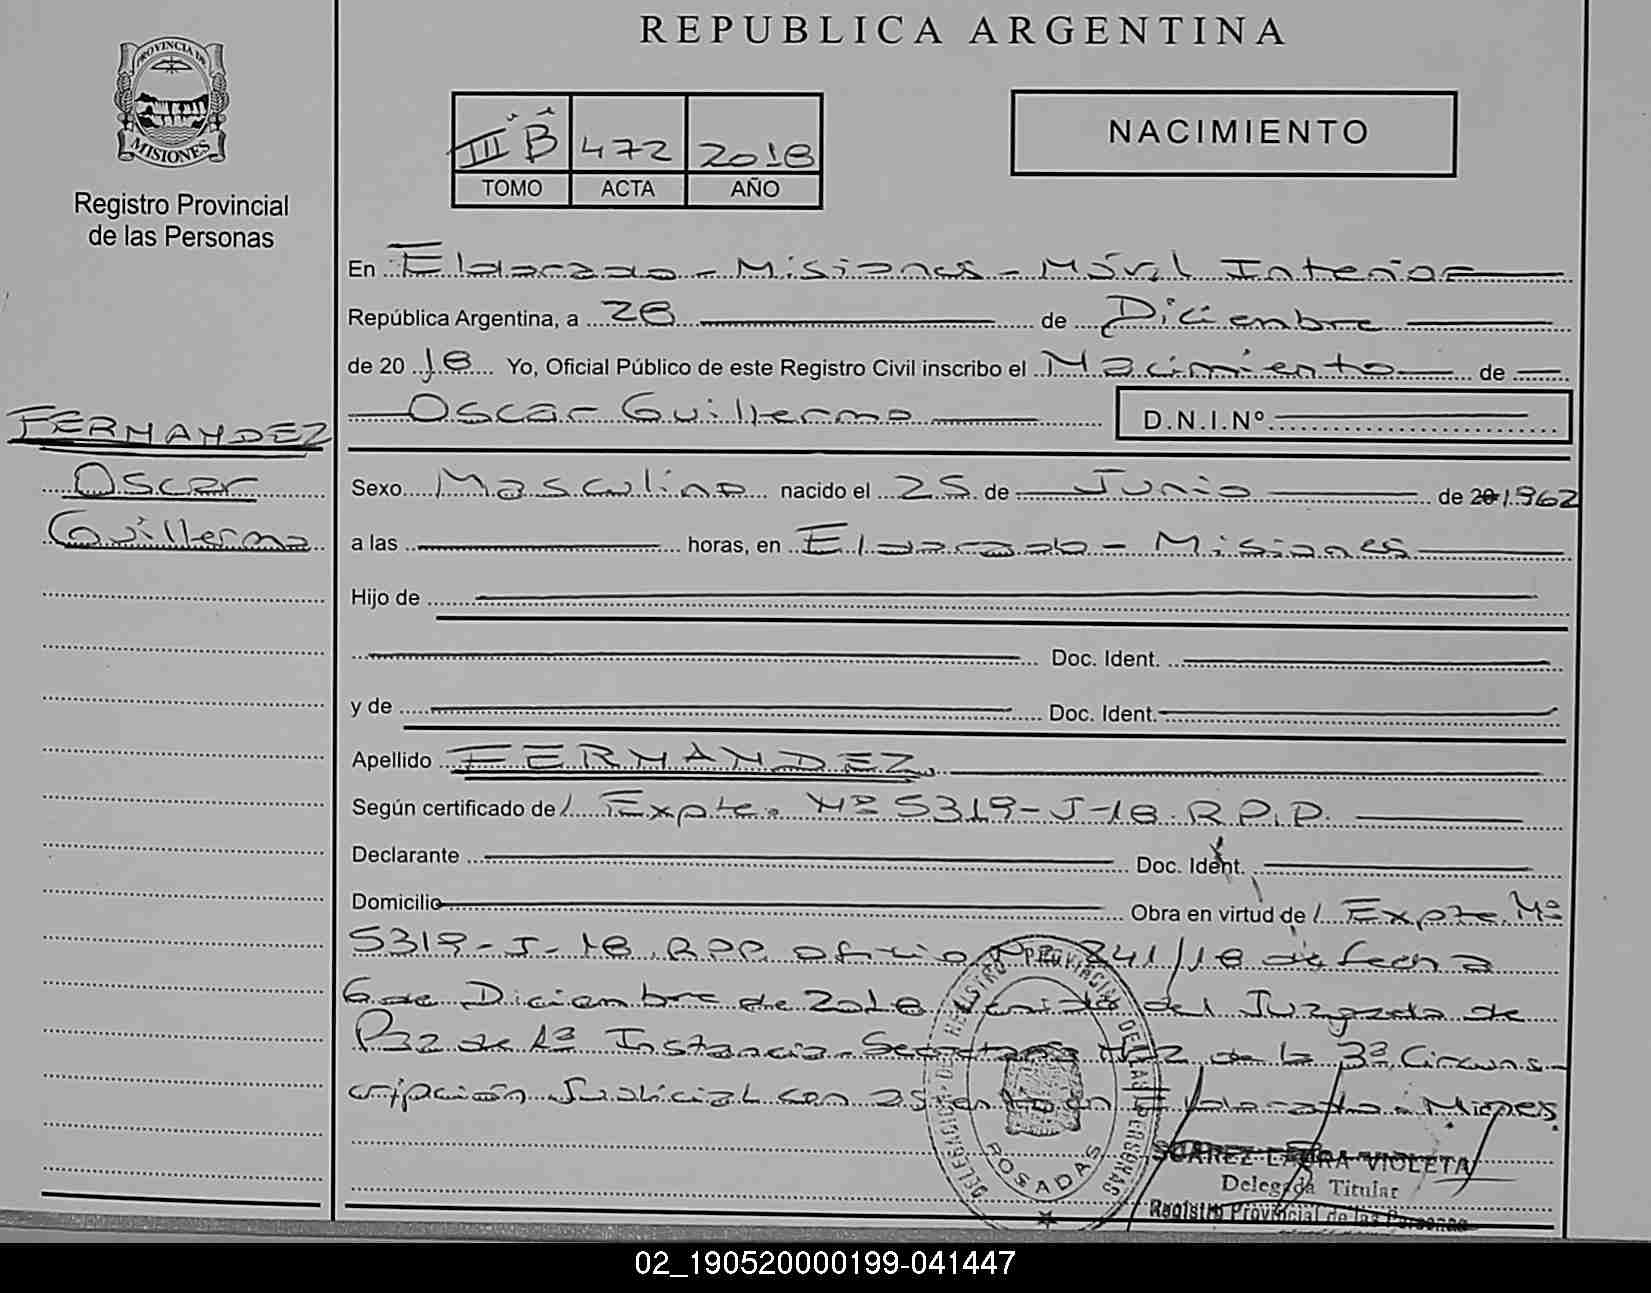 REPUBLICA ARGENTINA
PROVINCIA DE MISIONES
Registro Provincial
de las Personas
III B 472 2018
TOMO ACTA AÑO
NACIMIENTO
En Eldorado - Misiones - Móvil Interior
República Argentina, a 28 de Diciembre
de 20 18 Yo, Oficial Público de este Registro Civil inscribo el Nacimiento de
Oscar Guillermo D.N.I.Nº
FERNANDEZ
Oscar
Guillermo
Sexo Masculino nacido el 25 de Junio de 20 1962
a las horas, en Eldorado - Misiones
Hijo de
Doc. Ident.
y de Doc. Ident.
Apellido FERNANDEZ
Según certificado de Expte. Nº 5319-J-18.R.P.P.
Declarante Doc. Ident.
Domicilio Obra en virtud de Expte. Nº
5319-J-18.R.P.P. oficio Nº 841/18 de fecha
6 de Diciembre de 2018 del Juzgado de
Paz de 1ª Instancia Secretaría Nº2 de la 3ª Circuns-
cripción Judicial con asiento en Eldorado - Mnes.
DELEGACION DE REGISTRO PROVINCIAL DE LAS PERSONAS
ROSADAS
SUAREZ LAURA VIOLETA
Delegada Titular
Registro Provincial de las Personas
02_190520000199-041447